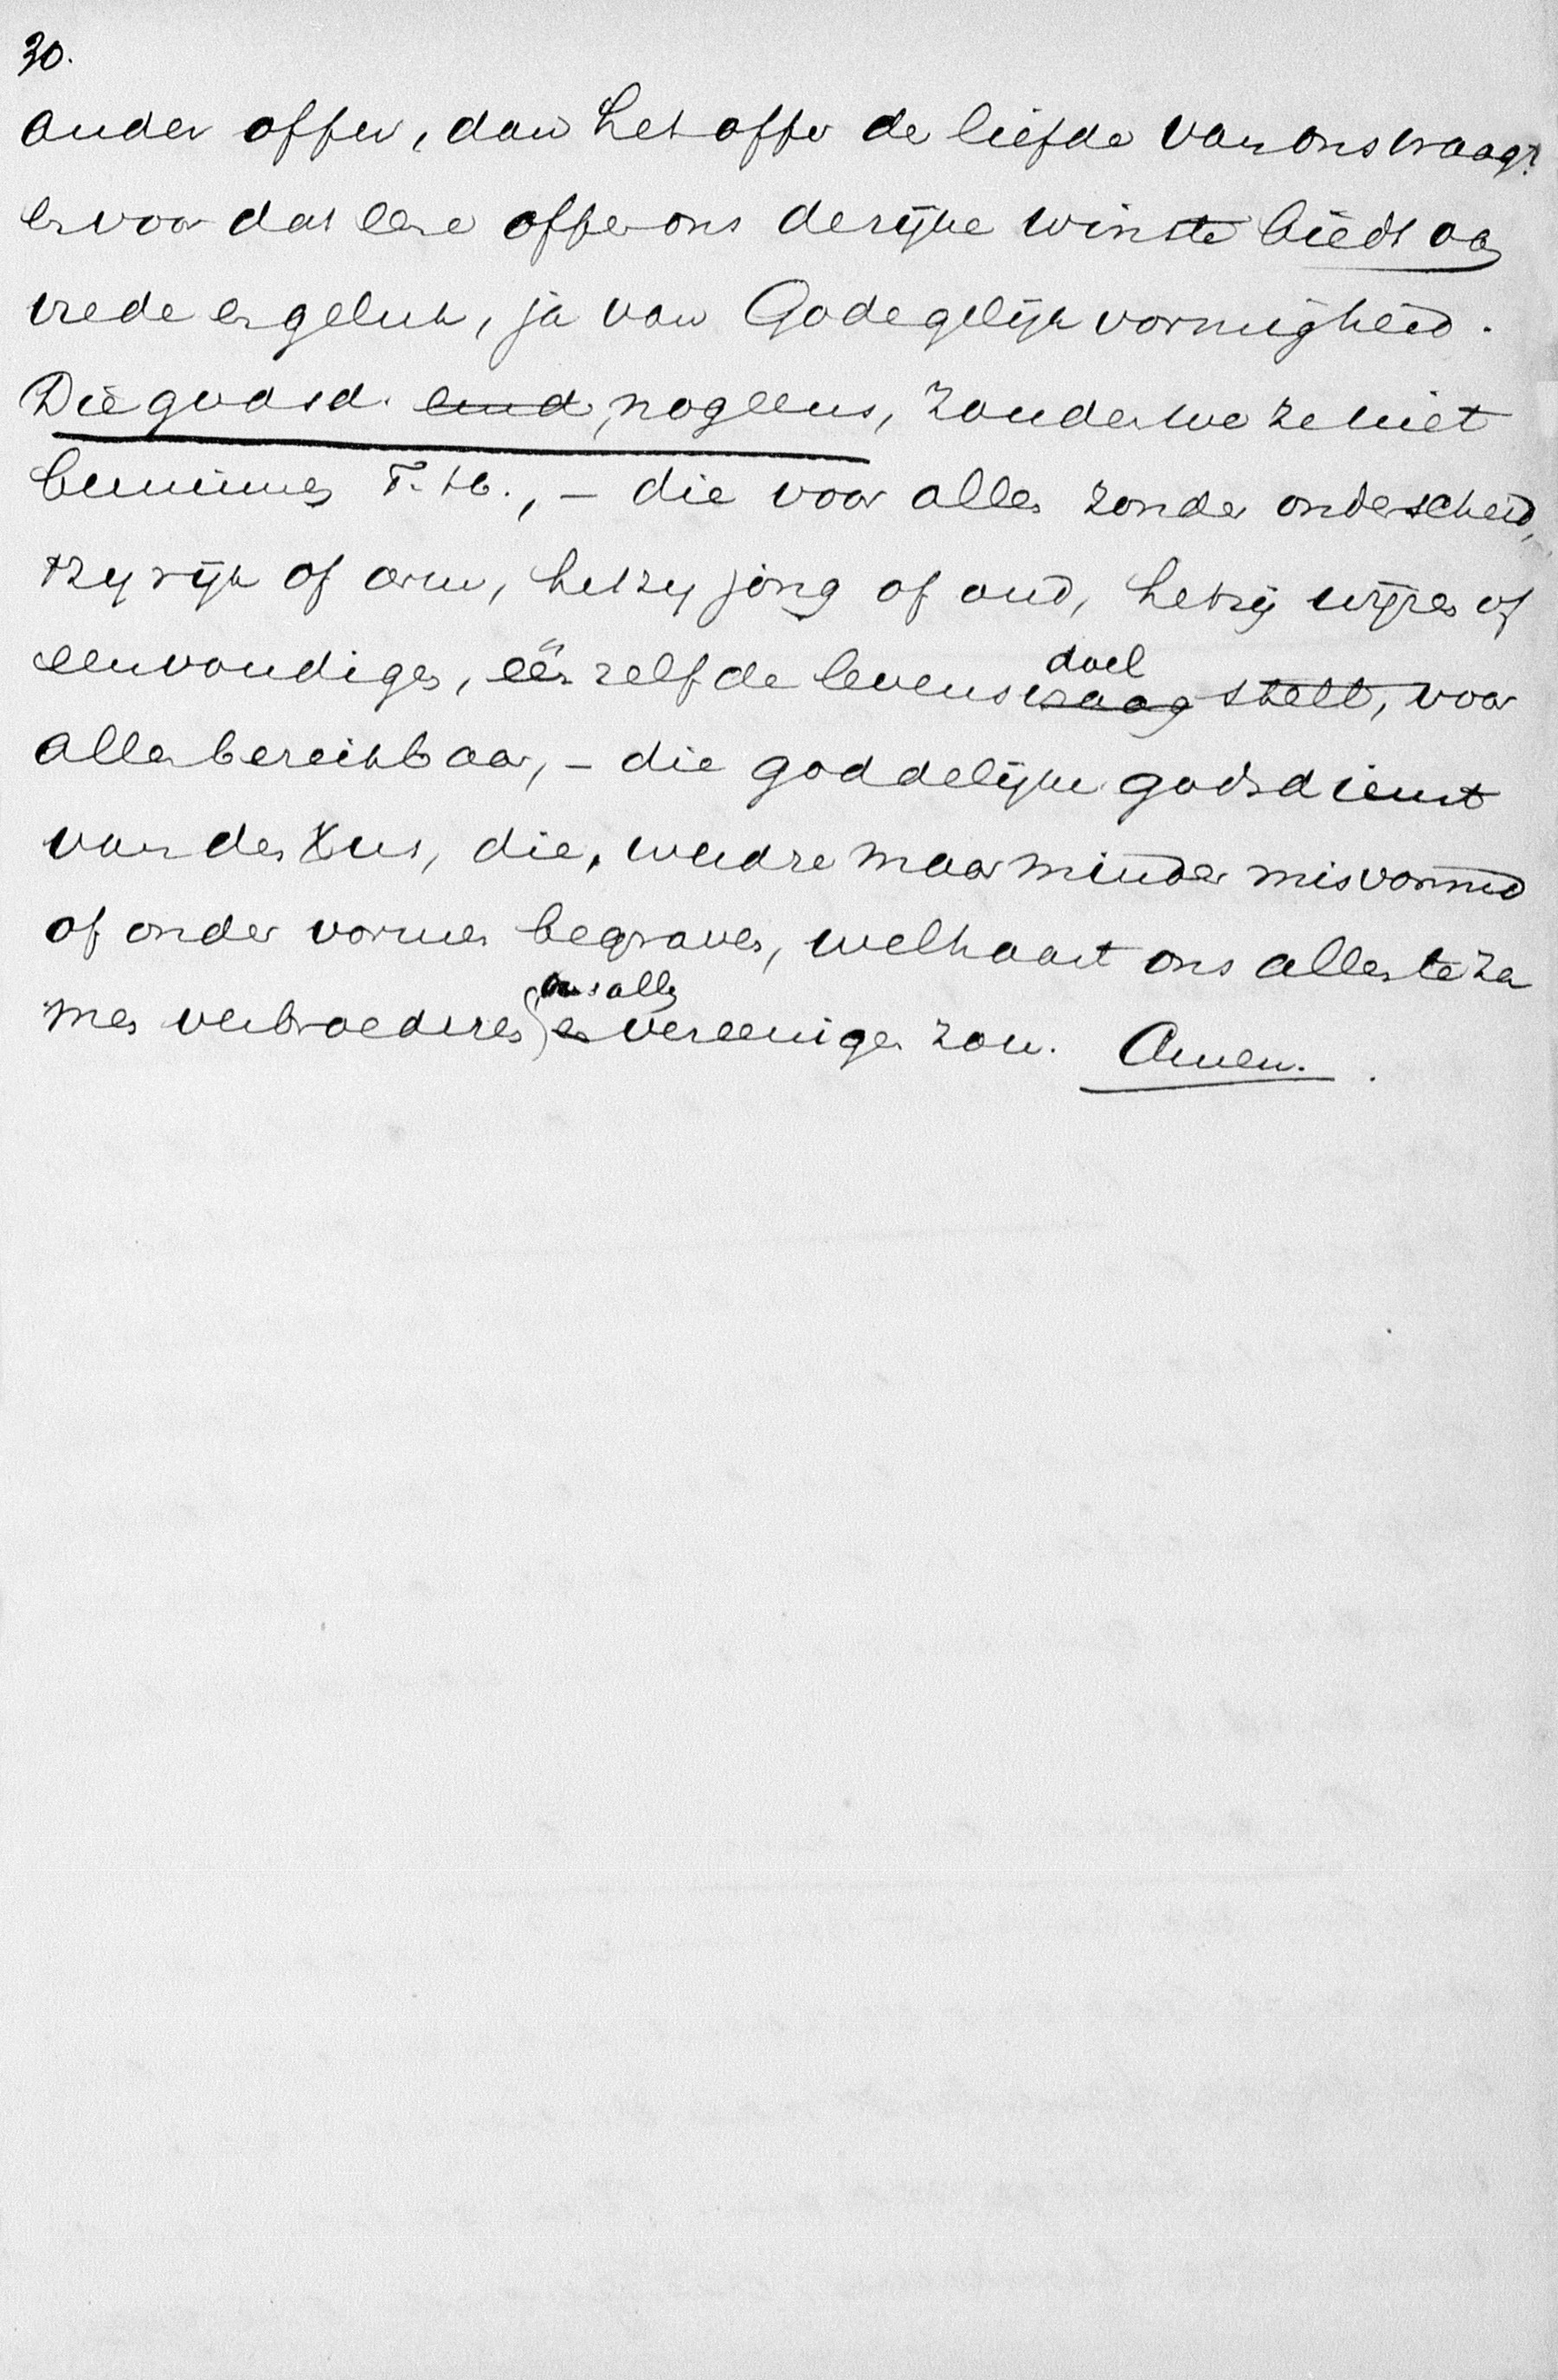 30.
ander offer, dan het offer de liefde van ons vraagt
en voor dat eene offer ons de rijke winste biedt van
vrede en geluk, ja van Godegelijkvormigheid.
Die godsd. nog eens, zouden we ze niet
beminnen T. H., – die voor allen zonder onderscheid,
tzy rijk of arm, hetzy jong of oud, hetzij wijzen of
eenvoudigen, één zelfde levensdoel stelt, voor
allen bereikbaar, – die goddelijke godsdienst
van den Xus, die, werd ze maar minder misvormd
of onder vormen begraven, welhaast ons allen te za
men verbroederen en ons allen vereenigen zou. Amen.